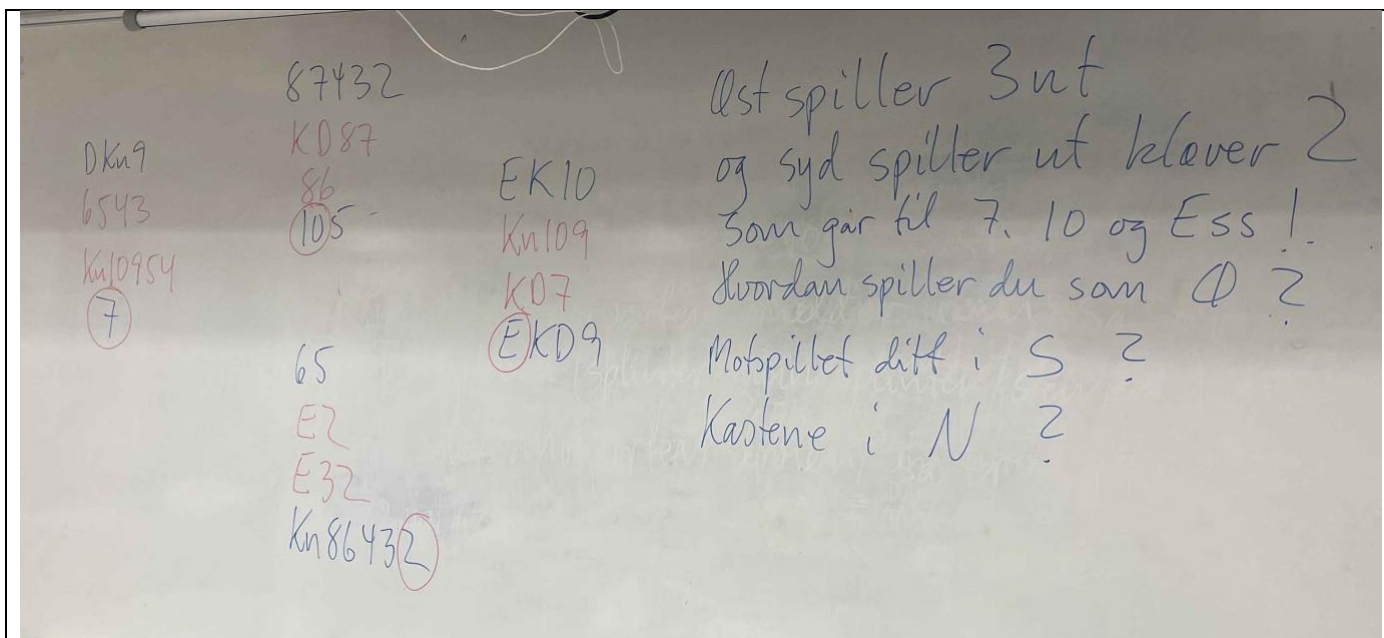 87432
KD87
86
105
DKn9
6543
Kn10954
7
EK10
Kn109
KD7
EKD9
65
E2
E32
Kn86432
Øst spiller 3 nt
og syd spiller ut kløver 2
som går til 7, 10 og Ess !.
Hvordan spiller du som Ø ?
Motspillet ditt i S ?
Kastene i N ?